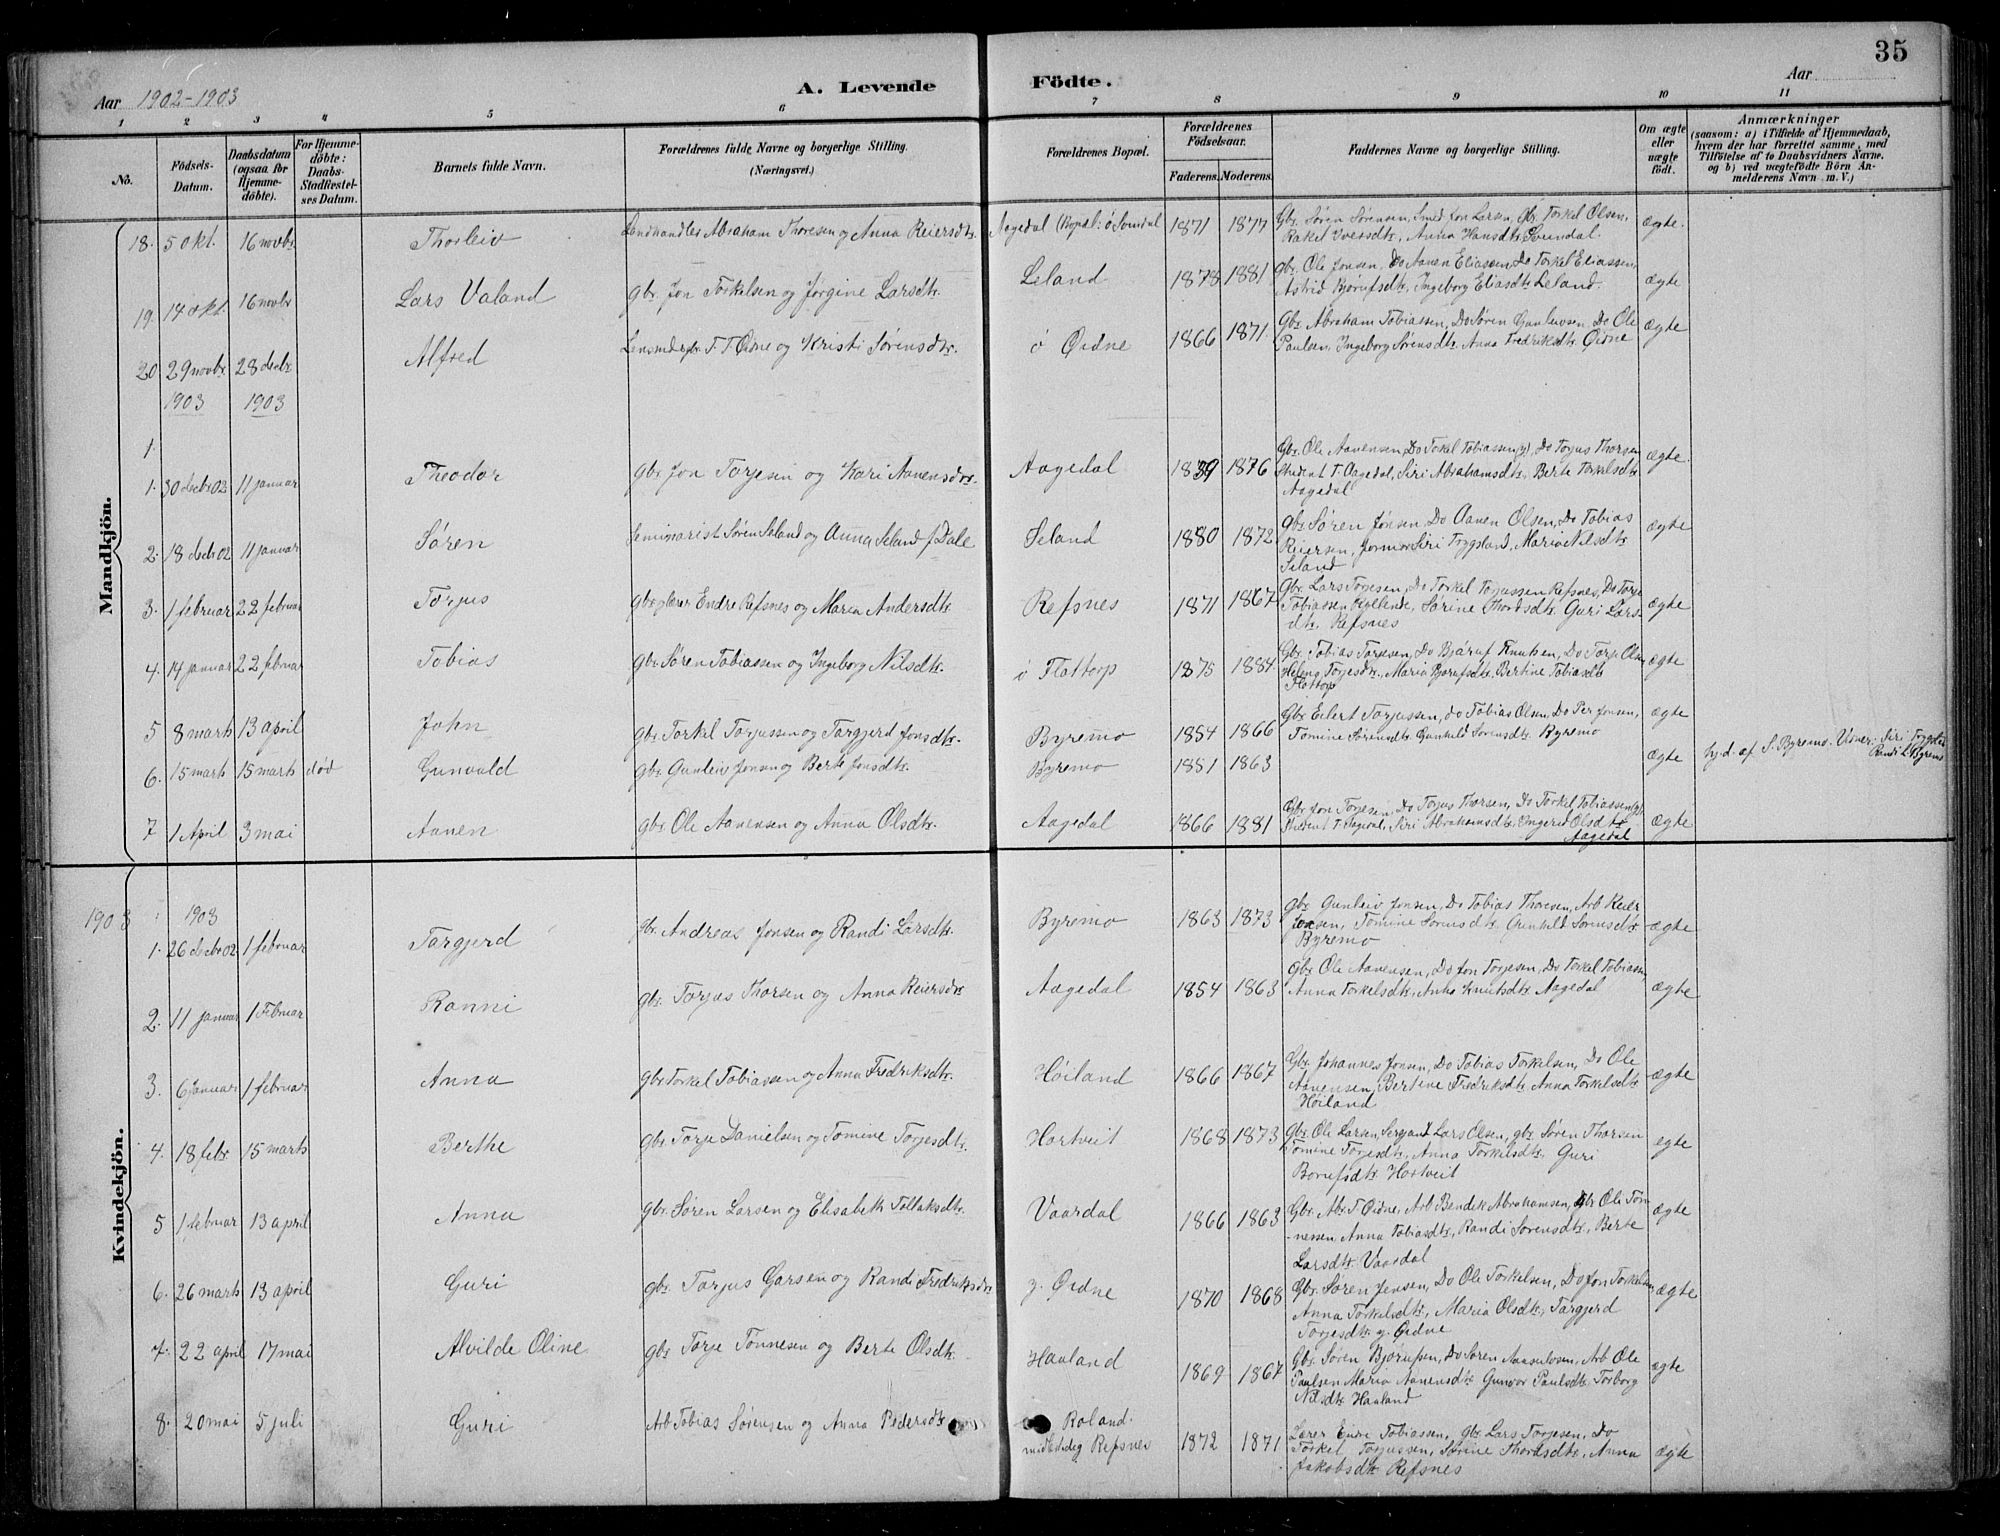 35
Aar 1902-1903
A. Levende Födte.
Aar
1 2 3 4 5 6 7 8 9 10 11
No.
Födsels-Datum.
Daabsdatum (ogsaa for Hjemme-döbte).
For Hjemme-döbte: Daabs-Stadfæstel-ses Datum.
Barnets fulde Navn.
Forældrenes fulde Navne og borgerlige Stilling. (Næringsvei.)
Forældrenes Bopæl.
Forældrenes Födselsaar.
Faderens. Moderens.
Faddernes Navne og borgerlige Stilling.
Om ægte eller uægte født.
Anmærkninger
(saasom: a) i Tilfælde af Hjemmedaab, hvem der har forrettet samme, med Tilföielse af to Daabsvidners Navne, og b) ved uægtefödte Börn An-melderens Navn m. V.)
Mandkjön.
18. 5 okt. 16 novbr. Thorleiv Landhandler Abraham Thoresen og Anna Reiersdtr. Aagedal (Bopæl: ø Svindal 1871 1877 Gbr. Søren Sørensen, Smed Jon Larsen, Gbr. Torkel Olsen, ægte.
Rakel Iversdtr., Anna Hansdtr. Svindal.
19. 14 okt. 16 novbr Lars Valand gbr. Jon Torkelsen og Jørgine Larsdtr. Leland 1878 1881 gbr. Ole Jonsen, Do Aanen Eliassen, Do Torkel Eliassen, ægte
Astrid Bjørufsdtr., Ingeborg Eliasdtr. Leland.
20 29 novbr. 28 decbr. Alfred T. T. Øidne og Kristi Sørensdtr. ø Øidne 1866 1871 Gbr. Abraham Tobiassen, Do Søren Gunluvsen, Do Ole ægte
Paulsen, Ingeborg Sørensdtr. Anna Fredriksdtr. Øidne
1903 1903
1.
1. 30 decbr 02 11 januar Theodor gbr. Jon Torjesen og Kari Aanensdtr. Aagedal 1839 1876 Gbr. Ole Aanensen, Do Torkel Tobiassen (y), Do Torjus Thorsen ægte.
Student T. Aagedal, Siri Abrahamsdtr., Berte Torkelsdtr.
Aagedal
2. 18 decbr 02 11 januar Søren Seminarist Søren Seland og Anna Seland f. Dale Seland 1880 1872 gbr. Søren Jonsen, Do Aanen Olsen, Do Tobias ægte
Reiersen, Siri Trygsland, Maria Nilsdtr.
Seland
3. 1 februar 22 februar Torjus Endre Refsnes og Maria Andersdtr. Refsnes 1871 1867 Gbr. Lars Torjesen, Do Torkel Torjussen Refsnes, Do Torje ægte
Tobiassen, Sørine Thordsdtr. Guri Lars-
dtr. Refsnes
4. 14 januar 22 februar Tobias gbr. Søren Tobiassen og Ingeborg Nilsdtr. ø Flottorp 1875 1884 Gbr. Tobias Torjesen, Do Bjøruf Knutsen, Do Torje Olsen ægte
Helene Torjesdtr., Maria Bjørufsdtr., Bertine Tobiasdtr.
Flottorp
5 8 marts 13 april John gbr. Torkel Torjussen og Torgjerd Jonsdtr. Byremo 1854 1866 Gbr. Eilert Torjussen, do Tobias Olsen, Do Per Jonsen, ægte
Tomine Sørensdtr. Gunhild Sørensdtr. Byremo
6. 15 marts 15 marts død Gunvald gbr. Gunleiv Jonsen og Berte Jonsdtr. Byremo 1851 1863 ægte hj. d. af S. Byremo. Siri
Randi Byremo
7 1 April 3 mai Aanen gbr. Ole Aanensen og Anna Olsdtr. Aagedal 1866 1881 Gbr. Jon Torjesen, Do Torjus Thorsen, Do Torkel Tobiassen (y), ægte
Student T. Aagedal, Siri Abrahamsdtr., Ingerid Olsdtr.
Aagedal
Kvindekjön.
1903 1903
1. 26 decbr 02 1 februar Targjerd gbr. Andreas Jonsen og Randi Larsdtr. Byremo 1863 1873 gbr. Gunleiv Jonsen, Do Tobias Thoresen, Arb Reier ægte
Jonsen, Tomine Sørensdtr. Gunhild Sørensdtr.
Byremo
2. 11 januar 1 Februar Ranni gbr. Torjus Thorsen og Anna Reiersdtr. Aagedal 1854 1863 gbr. Ole Aanensen, Do Jon Torjesen, Do Torkel Tobiassen, ægte
Anna Torkelsdtr., Anna Knutsdtr. Aagedal
3. 6 januar 1 februar Anna gbr. Torkel Tobiassen og Anna Fredriksdtr. Høiland 1866 1867 Gbr. Johannes Jonsen, Do Tobias Torkelsen, Do Ole ægte
Aanensen, Bertine Fredriksdtr. Anna Torkelsdtr.
Høiland
4. 18 febr. 15 marts Berthe gbr. Torje Danielsen og Tomine Torjesdtr. Hortveit 1868 1873 gbr. Ole Larsen, Sergant Lars Olsen, gbr. Søren Thorsen ægte
Tomine Torjesdtr., Anna Torkelsdtr. Guri
Hortveit
5 1 februar 13 april Anna gbr. Søren Larsen og Elisabeth Tollaksdtr. Vaardal 1866 1863 Gbr. Abr. T Øidne, Arb Bendik Abrahamsen, gbr Ole Tøn ægte
-nessen, Anna Tobiasdtr., Randi Sørensdtr., Berte
Larsdtr. Vaardal
6. 26 marts 13 april Guri gbr. Torjus Garsen og Randi Fredriksdtr. y. Øidne 1870 1868 Gbr. Søren Jensen, Do Ole Torkelsen, Do Jon Torkelsen ægte
Anna Torkelsdtr., Maria Olsdtr., Targjerd
Torjesdtr. y. Øidne
7. 22 april 17 mai Alvilde Oline gbr. Torje Tønnesen og Berte Olsdtr. Hauland 1869 1867 Gbr. Søren Bjørufsen, Do Søren Aanensen, Arb Ole ægte
Paulsen, Maria Aanensdtr. Gunvor Paulsdtr. Torborg
Nilsdtr. Hauland
8. 20 mai 5 juli Guri Arb Tobias Sørensen og Anna Pedersdtr. Roland. 1872 1871 Lærer Endre Tobiassen, gbr. Lars Torjesen, Do ægte
midlertidig Refsnes Torkel Torjussen, Sørine Thordsdtr. Anna
Jakobsdtr. Refsnes